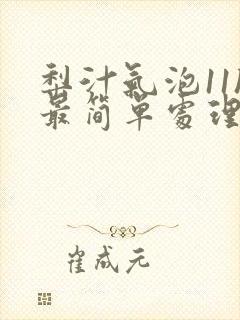 梨汁氣泡11
最简单處理
崔成元